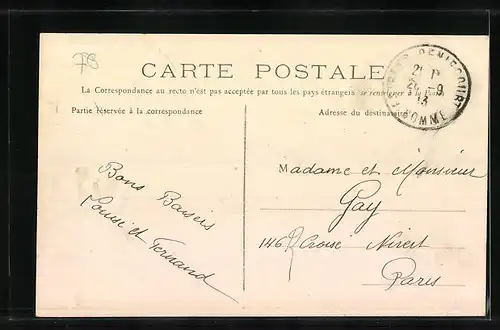 FB
CARTE POSTALE
La Correspondance au recto n'est pas acceptée par tous les pays étrangers
Partie réservée à la correspondance
Adresse du destinataire
DENIECOURT
SOMME
Bons Baisers
Louise et Fernand
Madame et Monsieur
Gay
146 R Croix Nivert
Paris